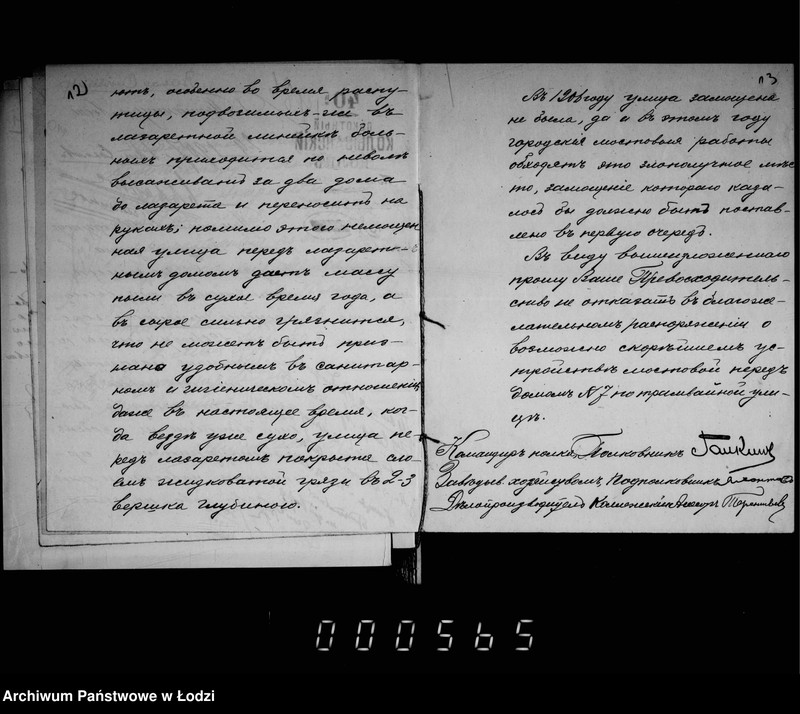 12)
ютъ, особенно во время распу-
тицы, подвозимымъ-же въ
лазаретной линейкѣ боль-
нымъ приходится по неволѣ
высаживать за два дома
до лазарета и переносить на
рукахъ; помимо этого немощен-
ная улица передъ лазарет-
нымъ домомъ даетъ массу
пыли въ сухое время года, а
въ сырое сильно грязнится,
что не можетъ быть приз-
нано удобнымъ въ санитар-
номъ и гигіеническомъ отношеніи,
даже въ настоящее время, ког-
да вездѣ уже сухо, улица пе-
редъ лазаретомъ покрыта сло-
емъ жидковатой грязи въ 2-3
вершка глубиною.
13
Въ 1906 году улица замощена
не была, да и въ этомъ году
городскія мостовыя работы
обходятъ это злополучное мѣс-
то, замощеніе котораго каза-
лось бы должно быть постав-
лено въ первую очередь.
Въ виду вышеизложеннаго
прошу Ваше Превосходитель-
ство не отказать въ благоже-
лательномъ распоряженіи о
возможно скорѣйшемъ ус-
тройствѣ мостовой передъ
домомъ №7 по трамвайной ули-
цѣ.
Командиръ полка, Полковникъ
Завѣдыв. хозяйствомъ Подполковникъ
Дѣлопроизводитель Коллежскій Ассесоръ
000565
Archiwum Państwowe w Łodzi